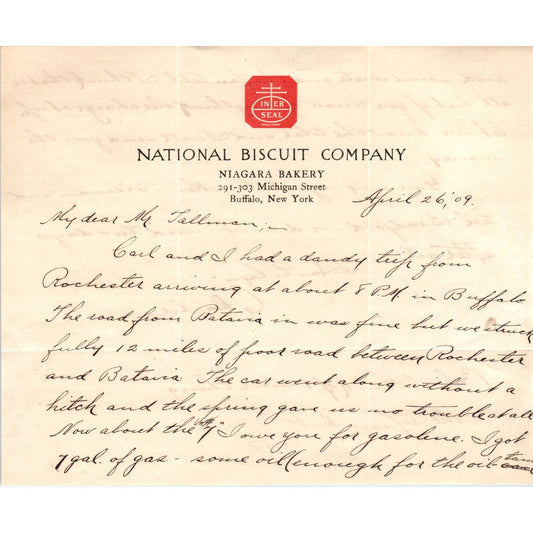 INTER
SEAL
NATIONAL BISCUIT COMPANY
NIAGARA BAKERY
291-303 Michigan Street
Buffalo, New York
April 26, '09.
My dear Mr Tallman;-
Carl and I had a dandy trip from
Rochester arriving at about 8 P.M in Buffalo.
The road from Batavia in was fine but we struck
fully 12 miles of poor road between Rochester
and Batavia The car went along without a
hitch and the spring gave us no trouble at all
Now about the "7" I owe you for gasoline. I got
7 gal. of gas - some oil (enough for the oil